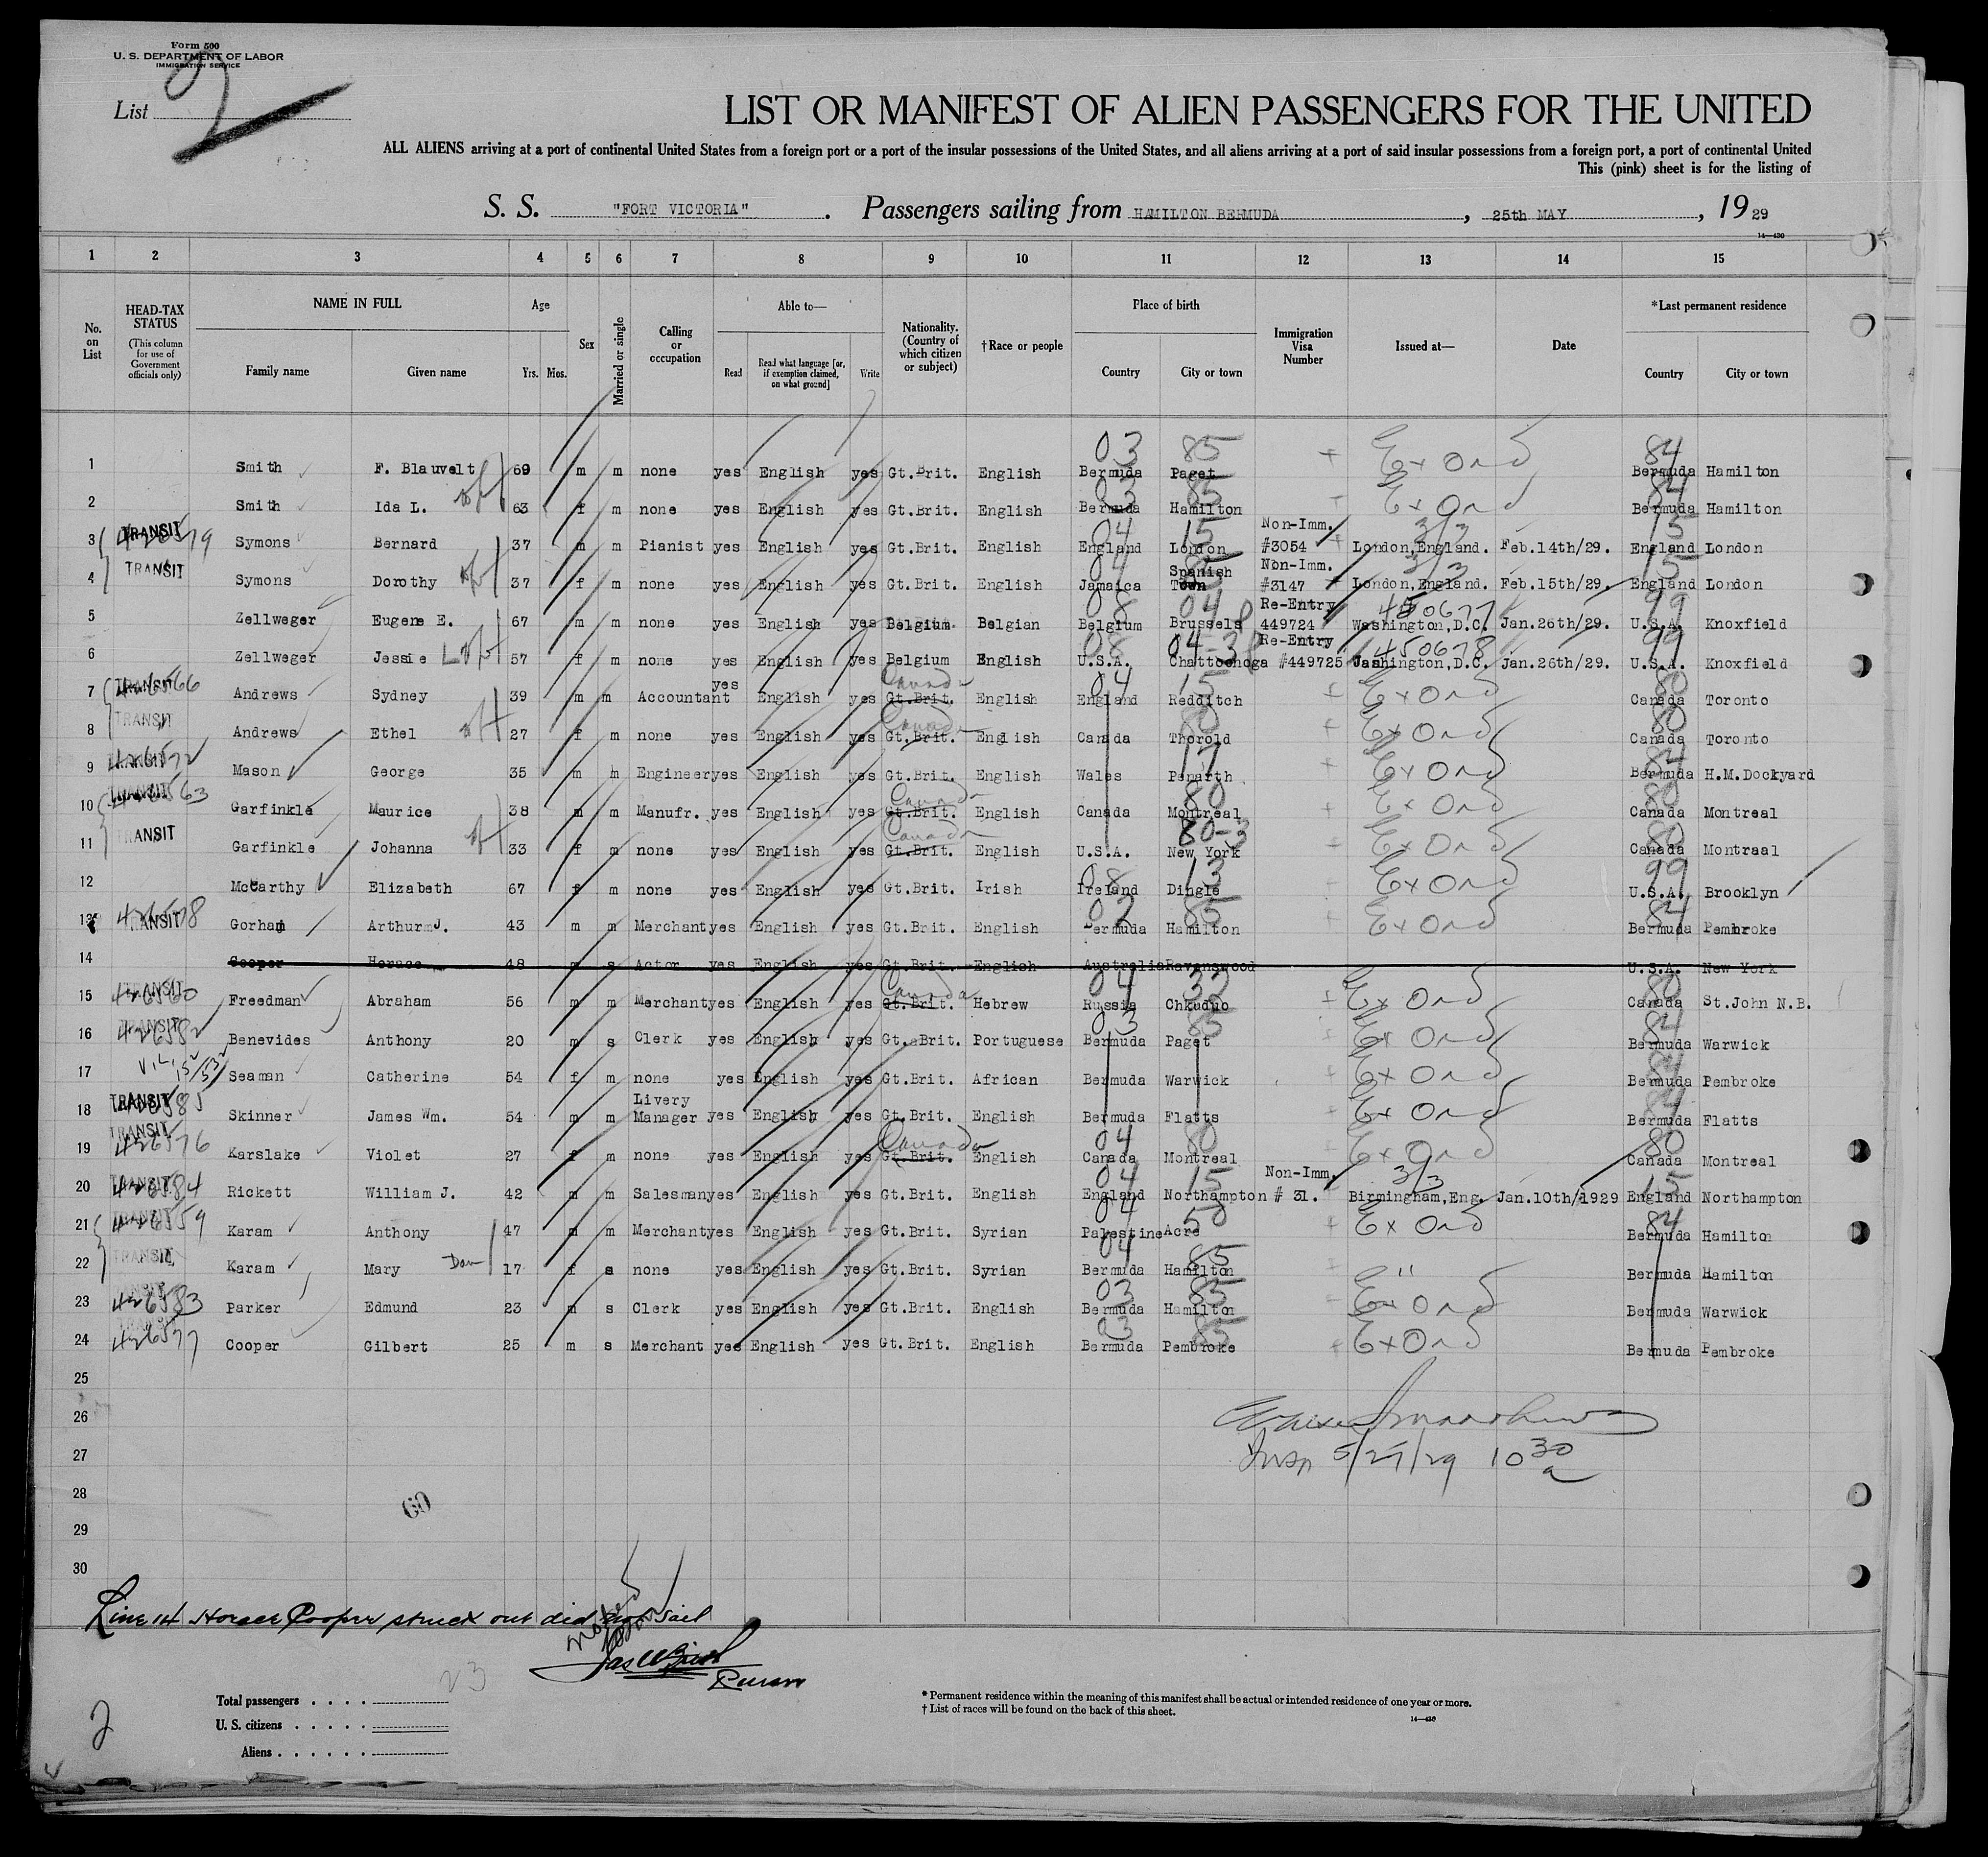 Form 500
U. S. DEPARTMENT OF LABOR
IMMIGRATION SERVICE
List 2
LIST OR MANIFEST OF ALIEN PASSENGERS FOR THE UNITED
ALL ALIENS arriving at a port of continental United States from a foreign port or a port of the insular possessions of the United States, and all aliens arriving at a port of said insular possessions from a foreign port, a port of continental United
This (pink) sheet is for the listing of
S. S. "FORT VICTORIA". Passengers sailing from HAMILTON BERMUDA, 25th MAY, 1929
14—430
1 2 3 4 5 6 7 8 9 10 11 12 13 14 15
No. on List
HEAD-TAX STATUS (This column for use of Government officials only)
NAME IN FULL
Family name Given name
Age
Yrs. Mos.
Sex
Married or single
Calling or occupation
Able to—
Read Read what language [or, if exemption claimed, on what ground] Write
Nationality. (Country of which citizen or subject)
†Race or people
Place of birth
Country City or town
Immigration Visa Number
Issued at—
Date
*Last permanent residence
Country City or town
03 85 84
1 Smith F. Blauvelt 69 m m none yes English yes Gt.Brit. English Bermuda Paget Ex Ond Bermuda Hamilton
03 85 84
2 Smith Ida L. 63 f m none yes English yes Gt.Brit. English Bermuda Hamilton Ex Ond Bermuda Hamilton
TRANSIT 04 15 Non-Imm. 3/3 15
3 Symons Bernard 37 m m Pianist yes English yes Gt.Brit. English England London #3054 London,England. Feb.14th/29. England London
TRANSIT 04 Spanish Non-Imm. 3/3 15
4 Symons Dorothy 37 f m none yes English yes Gt.Brit. English Jamaica Town #3147 London,England. Feb.15th/29. England London
08 04 Re-Entry 450677 99
5 Zellweger Eugene E. 67 m m none yes English yes Belgium Belgian Belgium Brussels 449724 Washington,D.C. Jan.26th/29. U.S.A. Knoxfield
08 04-3 Re-Entry 450678 99
6 Zellweger Jessie 57 f m none yes English yes Belgium English U.S.A. Chattoohoga #449725 Washington,D.C. Jan.26th/29. U.S.A. Knoxfield
TRANSIT 426566 Canada 04 15 80
7 Andrews Sydney 39 m m Accountant yes English yes Gt.Brit. English England Redditch Ex Ond Canada Toronto
TRANSIT Canada 80 80
8 Andrews Ethel 27 f m none yes English yes Gt.Brit. English Canada Thorold Ex Ond Canada Toronto
TRANSIT 426572 17 84
9 Mason George 35 m m Engineer yes English yes Gt.Brit. English Wales Penarth Ex Ond Bermuda H.M.Dockyard
TRANSIT 426563 Canada 80 80
10 Garfinkle Maurice 38 m m Manufr. yes English yes Gt.Brit. English Canada Montreal Ex Ond Canada Montreal
TRANSIT Canada 80-3 80
11 Garfinkle Johanna 33 f m none yes English yes Gt.Brit. English U.S.A. New York Ex Ond Canada Montraal
08 13 99
12 McCarthy Elizabeth 67 f m none yes English yes Gt.Brit. Irish Ireland Dingle Ex Ond U.S.A. Brooklyn
TRANSIT 426578 85 84
13 Gorham Arthur J. 43 m m Merchant yes English yes Gt.Brit. English Bermuda Hamilton Ex Ond Bermuda Pembroke
14 Cooper Horace 48 m s Actor yes English yes Gt.Brit. English Australia Ravenswood U.S.A. New York
TRANSIT 426560 Canada 04 32 80
15 Freedman Abraham 56 m m Merchant yes English yes Gt.Brit. Hebrew Russia Chkuduo Ex Ond Canada St.John N.B.
TRANSIT 426582 03 85 84
16 Benevides Anthony 20 m s Clerk yes English yes Gt. Brit. Portuguese Bermuda Paget Ex Ond Bermuda Warwick
84
17 Seaman Catherine 54 f m none yes English yes Gt.Brit. African Bermuda Warwick Ex Ond Bermuda Pembroke
TRANSIT 426585 Livery 84
18 Skinner James Wm. 54 m m Manager yes English yes Gt.Brit. English Bermuda Flatts Ex Ond Bermuda Flatts
TRANSIT 426576 Canada 04 80 80
19 Karslake Violet 27 f m none yes English yes Gt.Brit. English Canada Montreal Ex Ond Canada Montreal
TRANSIT 426584 04 15 Non-Imm. 3/3 15
20 Rickett William J. 42 m m Salesman yes English yes Gt.Brit. English England Northampton # 31. Birmingham,Eng. Jan.10th/1929 England Northampton
TRANSIT 426559 04 50 84
21 Karam Anthony 47 m m Merchant yes English yes Gt.Brit. Syrian Palestine Acre Ex Ond Bermuda Hamilton
TRANSIT 04 85
22 Karam Mary Dau 17 f s none yes English yes Gt.Brit. Syrian Bermuda Hamilton " Bermuda Hamilton
TRANSIT 426583 03 85
23 Parker Edmund 23 m s Clerk yes English yes Gt.Brit. English Bermuda Hamilton Ex Ond Bermuda Warwick
TRANSIT 426577 03 85
24 Cooper Gilbert 25 m s Merchant yes English yes Gt.Brit. English Bermuda Pembroke Ex Ond Bermuda Pembroke
25
26
27 Insp 5/27/29 10 30 a
28
60
29
30
Line 14 Horace Cooper struck out did not sail
Noted
Purser
23
Total passengers
U. S. citizens
Aliens
2
* Permanent residence within the meaning of this manifest shall be actual or intended residence of one year or more.
† List of races will be found on the back of this sheet.
14—430